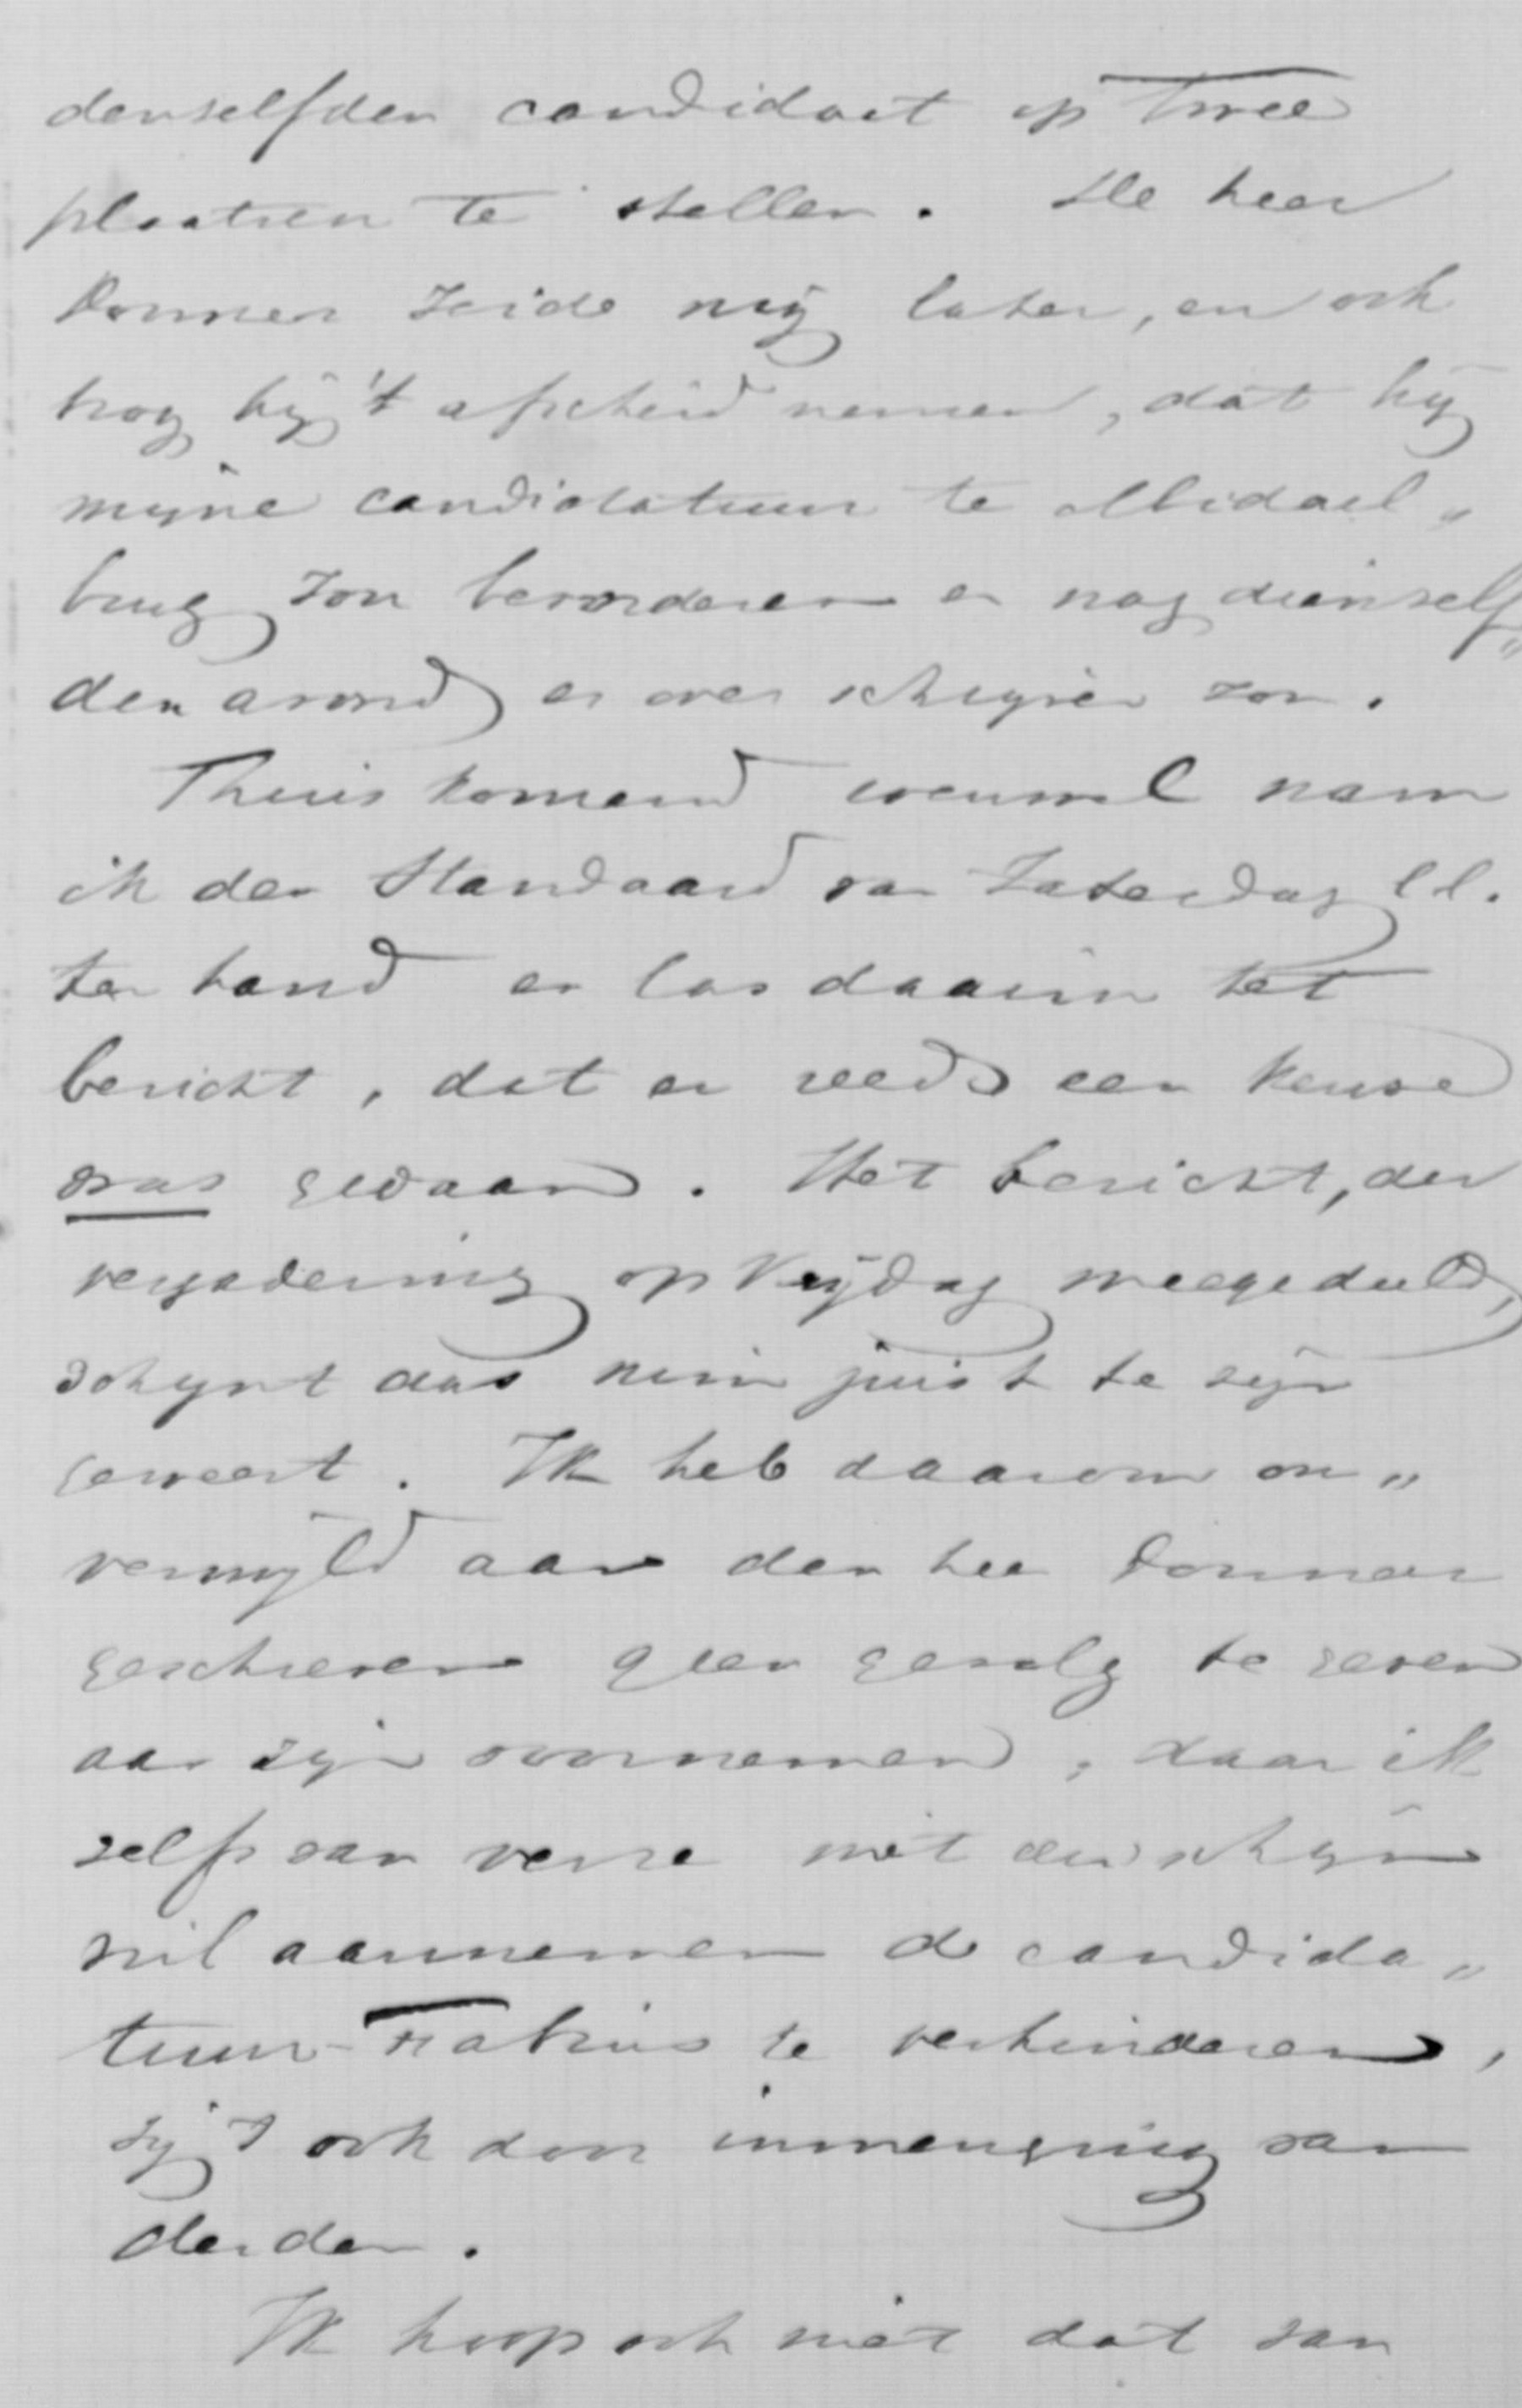 denselfden candidaat op twee
plaatsen te stellen. De heer
Donner zeide mij later, en ook
nog bij 't afscheid nemen, dat hij
mijne candidatuur te Middel„
burg zou bevorderen en nog dienself„
den avond er over schrijven zou.
Thuis komend evenwel nam
ik den Standaard van Zaterdag l.l.
ter hand en las daarin het
bericht, dat er reeds een keuze
was gedaan. Het bericht, der
vergadering op Vrijdag meegedeeld,
schijnt dus min juist te zijn
geweest. Ik heb daarom on„
verwijld aan den heer Donner
geschreven geen gevolg te geven
aan zijn voornemen, daar ik
zelfs van verre niet den schijn
wil aannemen de candida„
tuur-Fabius te verhinderen,
zij 't ook door inmenging van
derden.
Ik hoop ook niet dat van